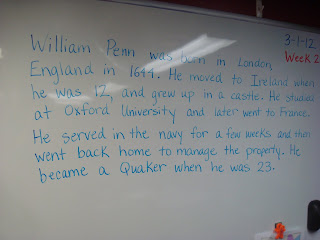 3-1-12
Week 2
William Penn was born in London,
England in 1644. He moved to Ireland when
he was 12, and grew up in a castle. He studied
at Oxford University and later went to France.
He served in the navy for a few weeks and then
went back home to manage the property. He
became a Quaker when he was 23.